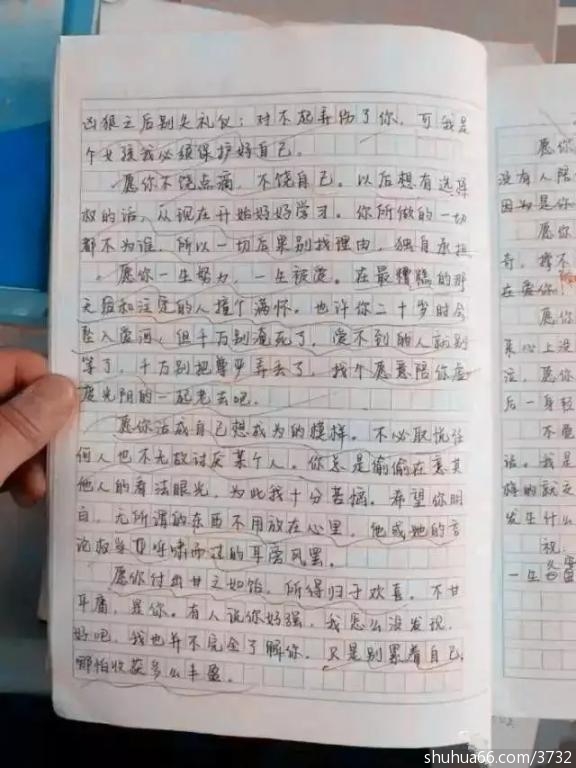 凶狠之后别失礼仪；对不起弄伤了你，可我是
个女孩我必须保护好自己。
愿你不饶点痛，不饶自己。以后想有选择
权的话，从现在开始好好学习。你所做的一切
都不为谁，所以一切后果别找理由，独自承担
愿你一生努力，一生被爱。在最糟糕的那
天后和注定的人撞个满怀。也许你二十岁时会
坠入爱河，但千万别淹死了，爱不到的人就别
等了，千万别把尊严弄丢了，找个愿意陪你虚
度光阴的一起老去吧。
愿你活成自己想成为的模样。不必取悦任
何人也不无故讨厌某个人。你总是偷偷在意其
他人的看法眼光，为此我十分苦恼。希望你明
白，无所谓的东西不用放在心里，他或她的言
论权当是呼啸而过的耳旁风罢。
愿你付出甘之如饴，所得归于欢喜。不甘
平庸，是你。有人说你好强，我怎么没发现，
好吧，我也并不完全了解你，只是别累着自己，
哪怕收获多么丰盈。
愿你
没有人陪
因为是你
愿你
奇，撑不
在爱你
愿你
来心上没
泣，愿你
后一身轻
不
话。我是
发生什么
祝：
一生
shuhua66.com/3732